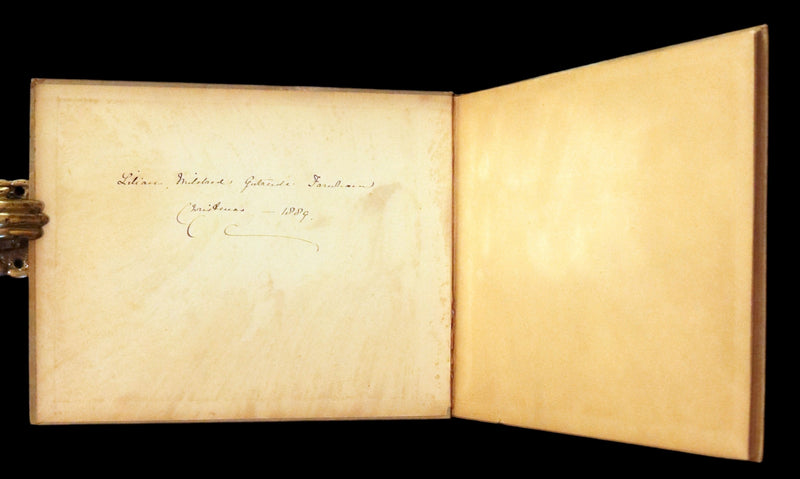 Lilian. Mildred. Gertrude. Farnham
Christmas — 1889.